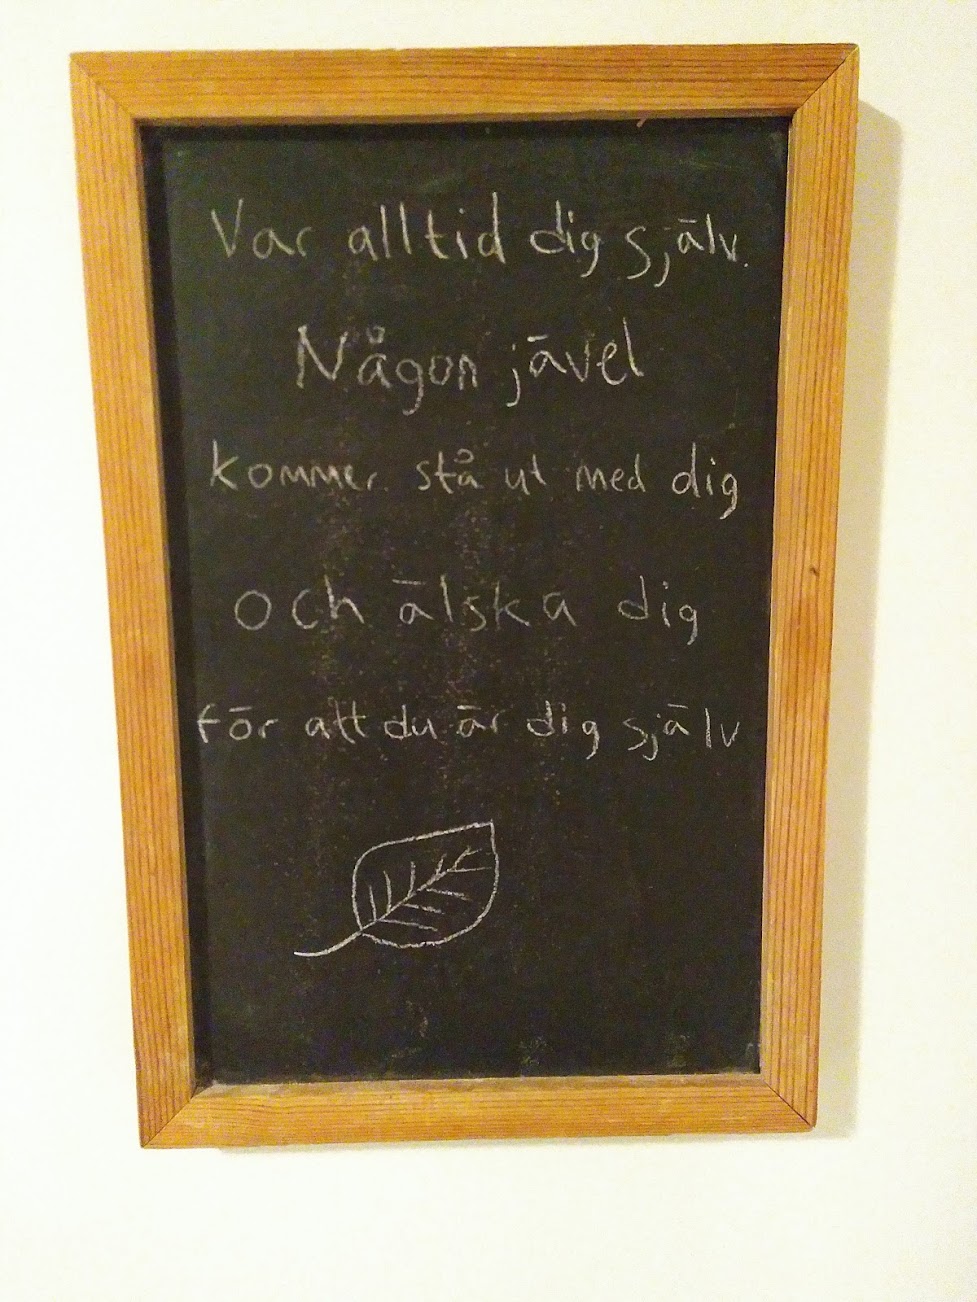 Var alltid dig själv.
Någon jävel
kommer stå ut med dig
och älska dig
för att du är dig själv